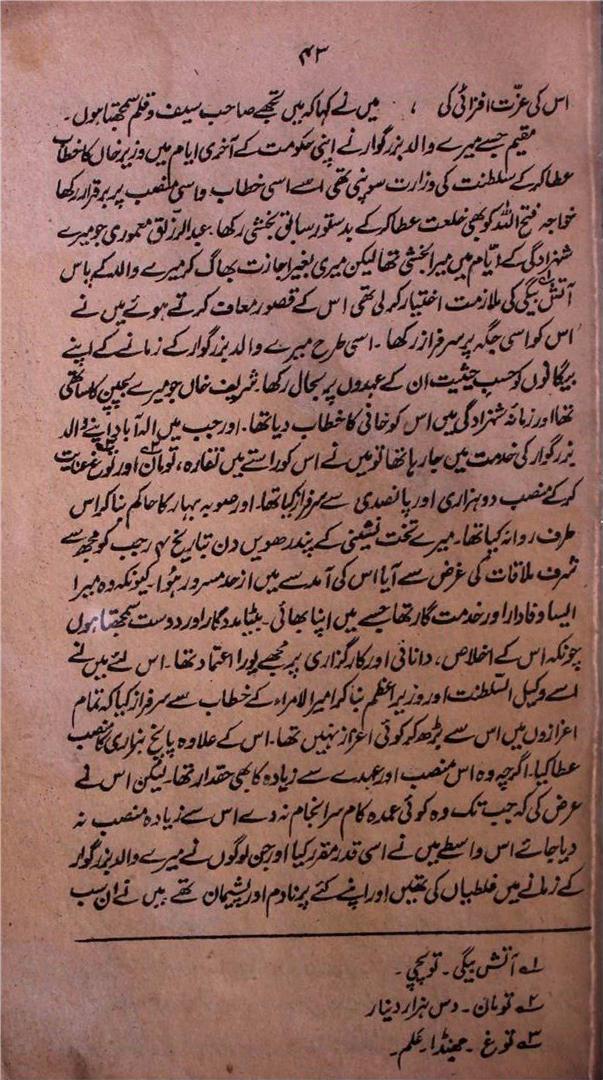 ۴۳
اس کی عزّت افزائی کی ، میں نے کہا کہ میں تجھے صاحب سیف و قلم سمجھتا ہوں۔
مقیم جسے میرے والد بزرگوار نے اپنی حکومت کے آخری ایام میں وزیر خاں کا خطاب
عطا کر کے سلطنت کی وزارت سونپی تھی اسے اسی خطاب و اسی منصب پر برقرار رکھا
خواجہ فتح اللہ کو بھی خلعت عطا کر کے بدستور سابق بخشی رکھا۔ عبدالرزّاق معموری جو میرے
شہزادگی کے ایّام میں میرا بخشی تھا لیکن میری بغیر اجازت بھاگ کر میرے والد کے پاس
آتش بیگی۱؎ کی ملازمت اختیار کر لی تھی اس کے قصور معاف کرتے ہوئے میں نے
اس کو اسی جگہ پر سرفراز رکھا ۔ اسی طرح میرے والد بزرگوار کے زمانے کے اپنے
بیگانوں کو حسبِ حیثیت ان کے عہدوں پر بحال رکھا۔ شریف خاں جو میرے بچپن کا ساتھی
تھا اور زمانہ شہزادگی میں اس کو خانی کا خطاب دیا تھا۔ اور جب میں الہ آباد اپنے والد
بزرگوار کی خدمت میں جا رہا تھا تو میں نے اس کو راستے میں نقارہ، تومان۲؎ اور توغ۳؎ عنایت
کر کے منصب دو ہزاری اور پانصدی سے سرفراز کیا تھا۔ اور صوبہ بہار کا حاکم بنا کر اس
طرف روانہ کیا تھا۔ میرے تخت نشینی کے پندرھویں دن بتاریخ ۴ رجب کو مجھ سے
شرف ملاقات کی غرض سے آیا اس کی آمد سے میں از حد مسرور ہُوا۔ کیونکہ وہ میرا
ایسا وفادار اور خدمت گار تھا جسے میں اپنا بھائی۔ بیٹیا مددگار اور دوست سمجھتا ہوں
چونکہ اس کے اخلاص، دانائی اور کارگزاری پر مجھے پورا اعتماد تھا۔ اس لئے میں نے
اسے وکیل السّلطنت اور وزیر اعظم بنا کر امیرالامراء کے خطاب سے سرفراز کیا کہ تمام
اعزازوں میں اس سے بڑھ کر کوئی اعزاز نہیں تھا۔ اس کے علاوہ پانچ ہزاری کا منصب
عطا کیا۔ اگرچہ وہ اس منصب اور عہدے سے زیادہ کا بھی حقدار تھا۔ لیکن اس نے
عرض کی کہ جب تک وہ کوئی عمدہ کام سرانجام نہ دے اس سے زیادہ منصب نہ
دیا جائے اس واسطے میں نے اسی قدر مقرر کیا اور جن لوگوں نے میرے والد بزرگوار
کے زمانے میں غلطیاں کی تھیں اور اپنے کئے پر نادم اور پشیمان تھے میں نے ان سب
۱؎ آتش بیگی۔ توپچی۔
۲؎ تومان۔ دس ہزار دینار
۳؎ توغ ۔ جھنڈا۔ عَلم۔